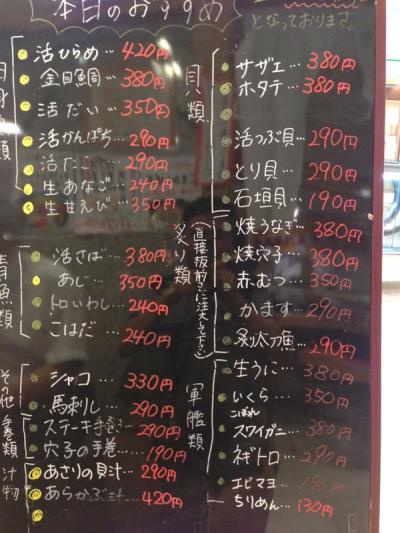 本日のおすすめ
となっております。
活ひらめ…420円
金目鯛…380円
活だい…350円
活かんぱち…290円
活たこ…290円
生あなご…240円
生甘えび…350円
青魚類
活さば…380円
あじ…350円
トロいわし…240円
こはだ…240円
その他
シャコ…330円
馬刺し…290円
手巻類
ステーキ手巻き…290円
穴子の手巻…190円
汁物
あさりの貝汁…290円
あらかぶ汁…420円
貝類
サザエ…380円
ホタテ…380円
活つぶ貝…290円
とり貝…290円
石垣貝…190円
炙り類
(直接板前さんに注文して下さい)
焼うなぎ…380円
焼穴子…380円
赤むつ…350円
かます…290円
炙太刀魚…290円
軍艦類
生うに…380円
いくら…350円
こぼれ
スワイガニ…380円
ネギトロ…290円
エビマヨ…190円
ちりめん…130円